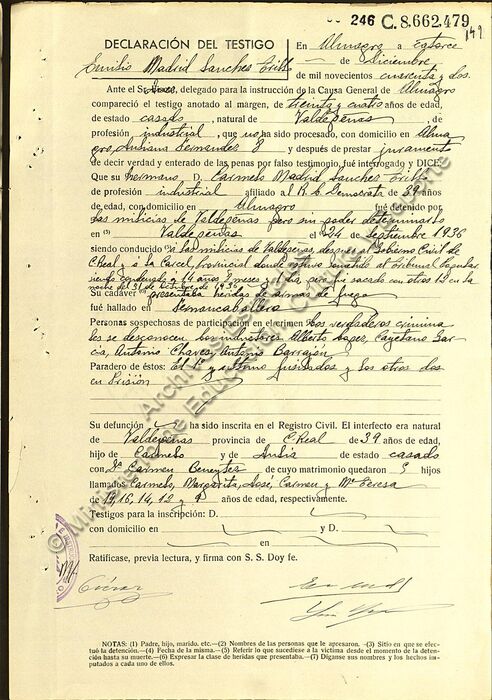 246 C.8.662.479
149
DECLARACIÓN DEL TESTIGO
Emilio Madrid Sanchez Trillo
En Almagro a catorce
de diciembre
de mil novecientos cuarenta y dos.
Ante el Sr. delegado para la instrucción de la Causa General de Almagro
compareció el testigo anotado al margen, de treinta y cuatro años de edad,
de estado casado, natural de Valdepeñas, de
profesión industrial, que no ha sido procesado, con domicilio en Alma
gro, 8 y después de prestar juramento
de decir verdad y enterado de las penas por falso testimonio, fué interrogado y DICE:
Que su hermano D. Carmelo Madrid Sanchez Trillo
de profesión industrial afiliado al Democrata de 39 años
de edad, con domicilio en Almagro fué detenido por
las milicias de Valdepeñas pero sin poder determinarlo
en (3) Valdepeñas el (4) 24 de septiembre 1936
siendo conducido (5) a las milicias de Valdepeñas, despues al Gobierno Civil de
C. Real y a la Carcel Provincial donde estuvo sometido al tribunal popular
siendo condenado a 14 años y sacado con otros en la
noche del 31 de octubre de 1936
Su cadáver (6) presentaba heridas de armas de fuego
fué hallado en Fernancaballero
Personas sospechosas de participación en el crimen: (7) Los verdaderos crimina
les se desconocen. Los inductores Alberto Lopez, Cayetano Gar
cia, Antonio Chaves, Antonio Barrajon
Paradero de éstos: El 1º y ultimo fusilados y los otros dos
en Prisión
Su defunción ha sido inscrita en el Registro Civil. El interfecto era natural
de Valdepeñas provincia de C. Real de 39 años de edad,
hijo de Carmelo y de de estado casado
con Dª Carmen de cuyo matrimonio quedaron 5 hijos
llamados Carmelo, Margarita, José, Carmen y Mª Teresa
de 19, 16, 14, 12 y 9 años de edad, respectivamente.
Testigos para la inscripción: D.
con domicilio en y D.
con domicilio en
Ratifícase, previa lectura, y firma con S. S. Doy fe.
NOTAS: (1) Padre, hijo, marido, etc.—(2) Nombres de las personas que le apresaron. (3) Sitio en que se efec-
tuó la detención.—(4) Fecha de la misma.—(5) Referir lo que sucediese a la víctima desde el momento de la deten-
ción hasta su muerte.—(6) Expresar la clase de heridas que presentaba.—(7) Díganse sus nombres y los hechos im-
putados a cada uno de ellos.